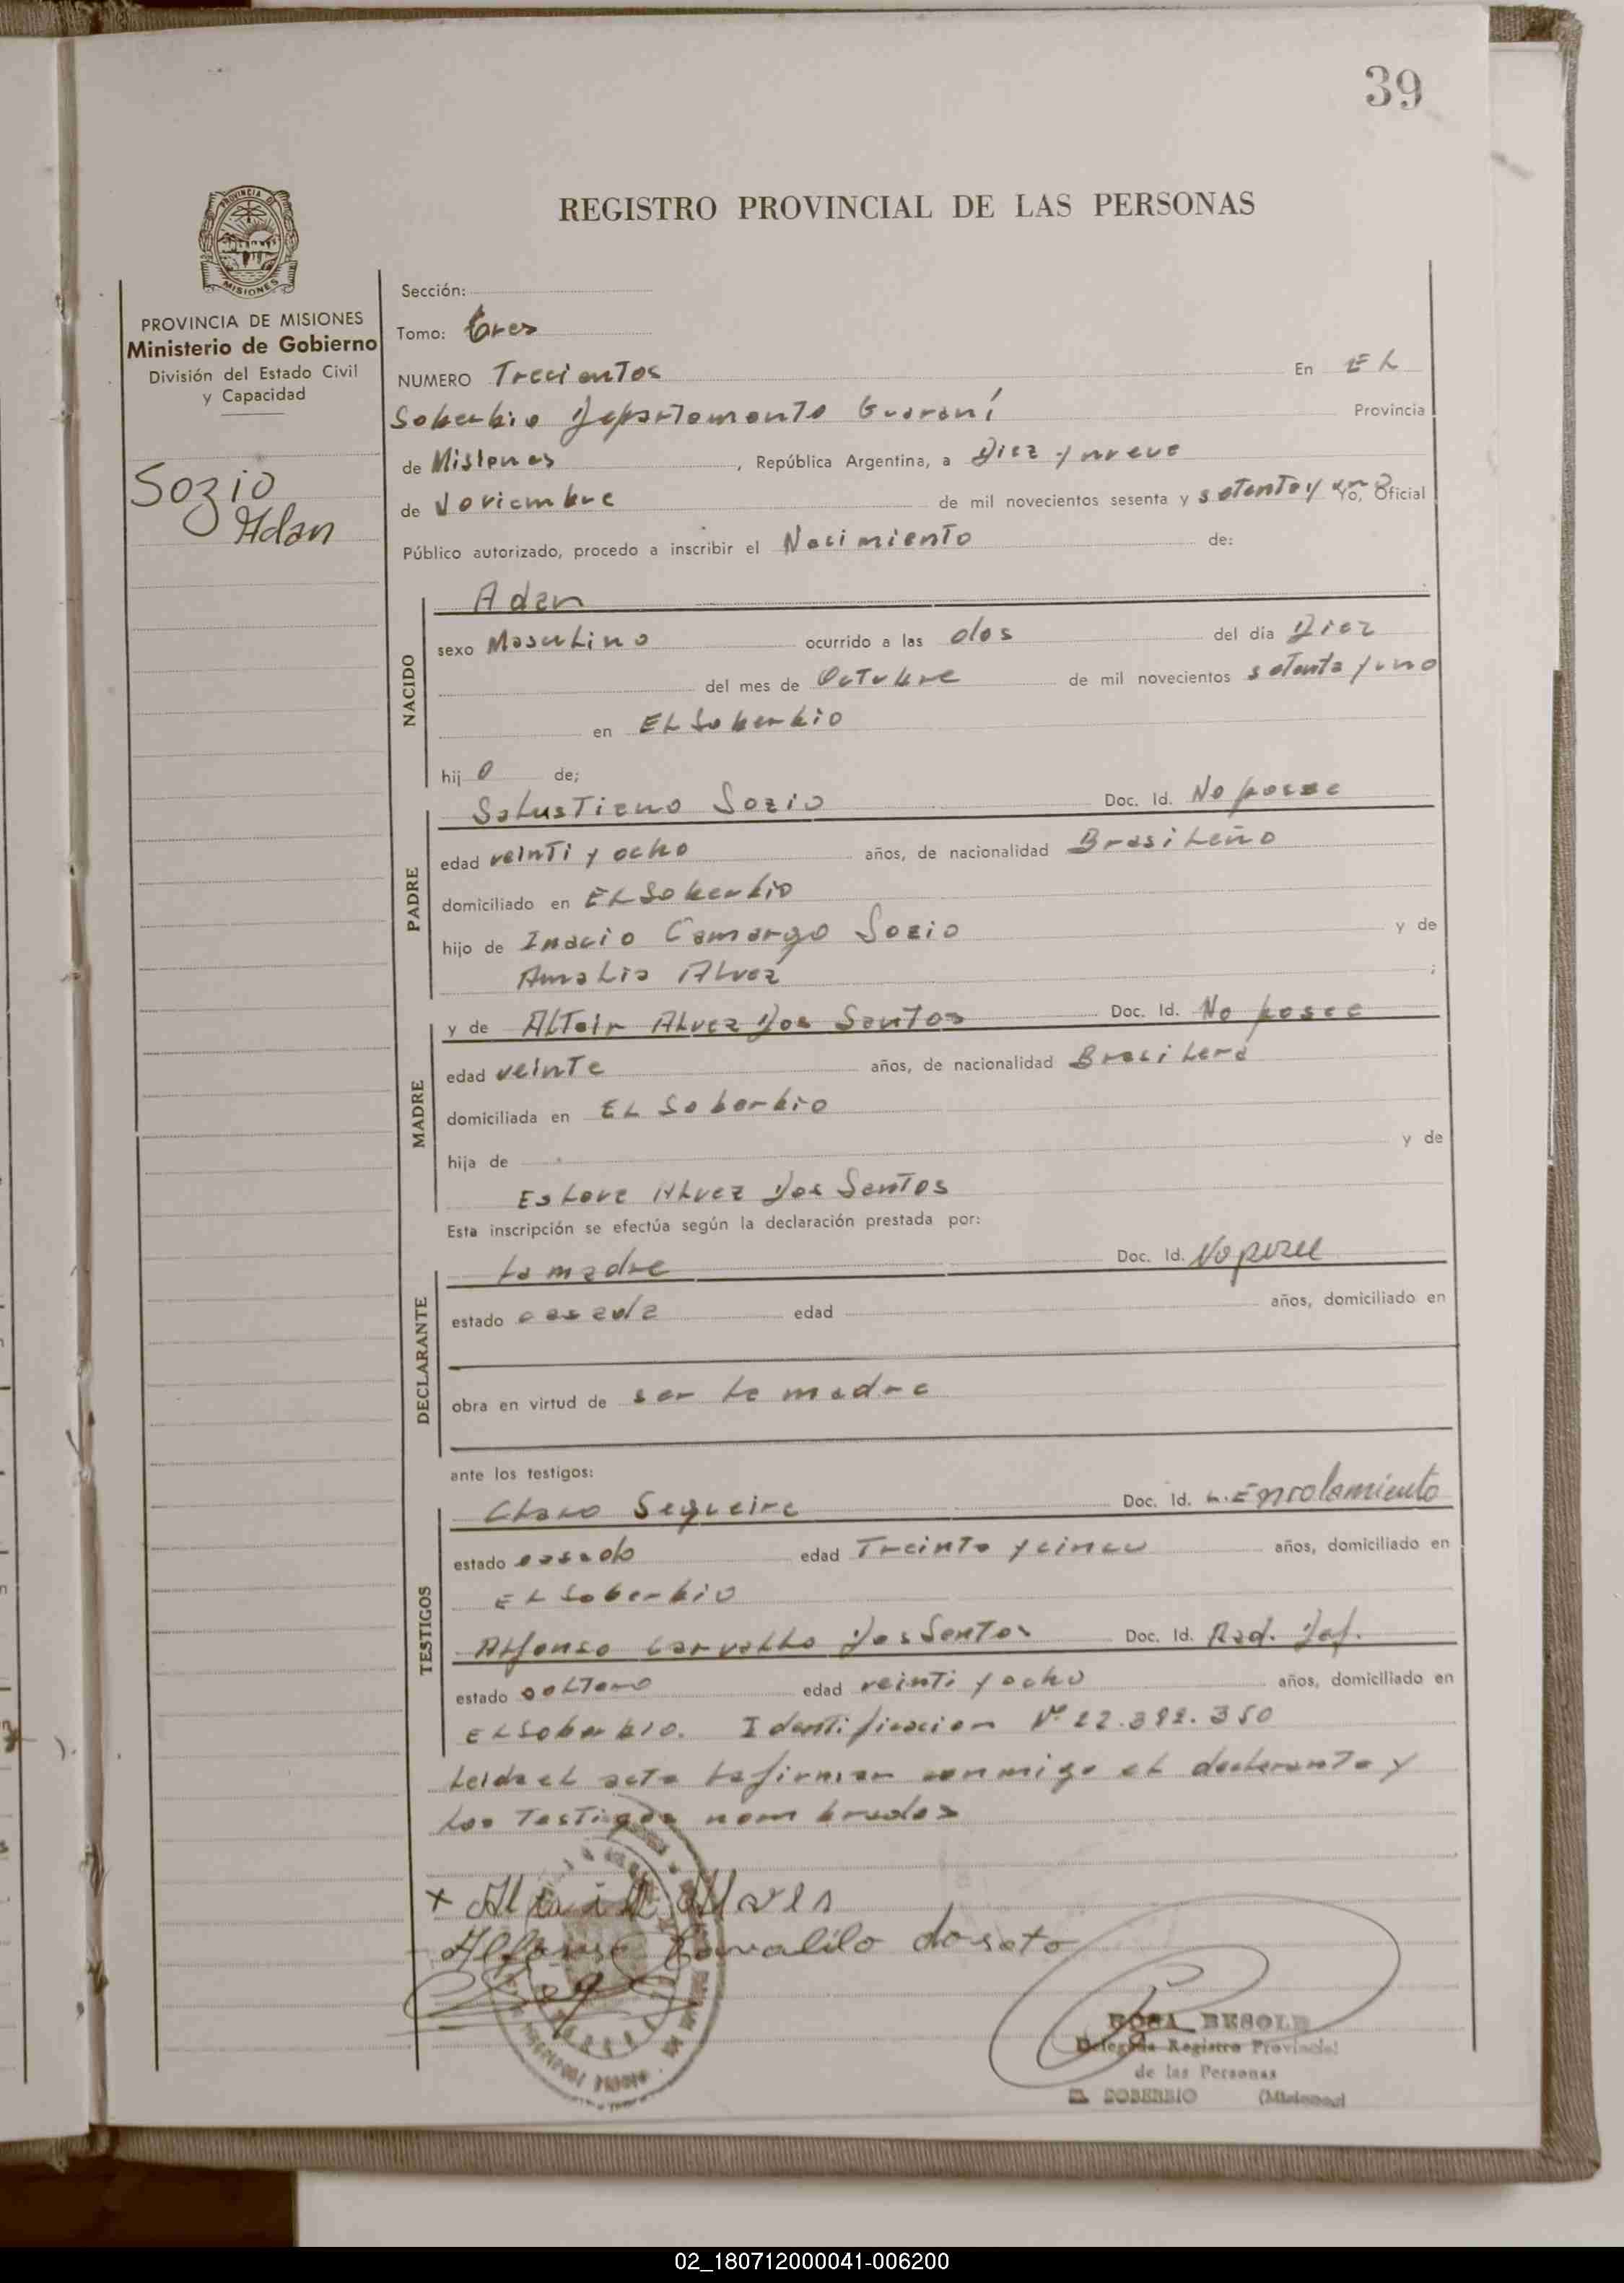 39
REGISTRO PROVINCIAL DE LAS PERSONAS
PROVINCIA DE
MISIONES
PROVINCIA DE MISIONES
Ministerio de Gobierno
División del Estado Civil
y Capacidad
Sozio
Adan
Sección:
Tomo: tres
NUMERO Trecientos En EL
Soberbio Departamento Guaraní Provincia
de Misiones, República Argentina, a Diez y nueve
de Noviembre de mil novecientos sesenta y setenta y un Yo, Oficial
Público autorizado, procedo a inscribir el Nacimiento de:
NACIDO
Adan
sexo Masculino ocurrido a las dos del día Diez
del mes de Octubre de mil novecientos setenta y uno
en EL Soberbio
hijo de;
PADRE
Salustiano Sozio Doc. Id. No posee
edad veinti y ocho años, de nacionalidad Brasileño
domiciliado en EL Soberbio
hijo de Inacio Camargo Sozio y de
Amalia Alvez ;
MADRE
y de Altair Alvez Dos Santos Doc. Id. No posee
edad veinte años, de nacionalidad Brasilera
domiciliada en EL Soberbio
hija de y de
Alvez Dos Santos
Esta inscripción se efectúa según la declaración prestada por:
DECLARANTE
La madre Doc. Id. No posee
estado casada edad años, domiciliado en
obra en virtud de ser la madre
ante los testigos:
TESTIGOS
Claro Sequeira Doc. Id. L. Enrolamiento
estado casado edad Treinta y cinco años, domiciliado en
EL Soberbio
Alfonso Carvalho Dos Santos Doc. Id. Rad. Def.
estado soltero edad veinti y ocho años, domiciliado en
EL Soberbio. Identificacion Nº 22.392.350
Leida el acta la firman conmigo el declarante y
los Testigos nombrados
x Alves
Alfonso dosato
ROSA BESOLD
Delegada Registro Provincial
de las Personas
EL SOBERBIO (Misiones)
02_180712000041-006200